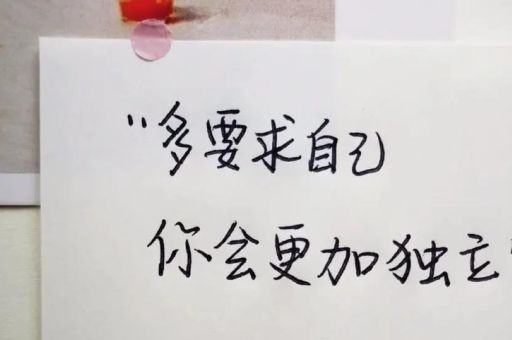 "多要求自己
你会更加独立